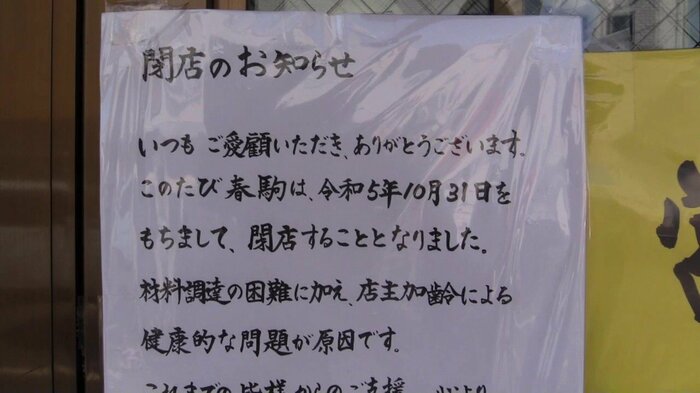 閉店のお知らせ
いつも ご愛顧いただき、ありがとうございます。
このたび春駒は、令和5年10月31日を
もちまして、閉店することとなりました。
材料調達の困難に加え、店主加齢による
健康的な問題が原因です。
これまでの皆様からのご支援 心より